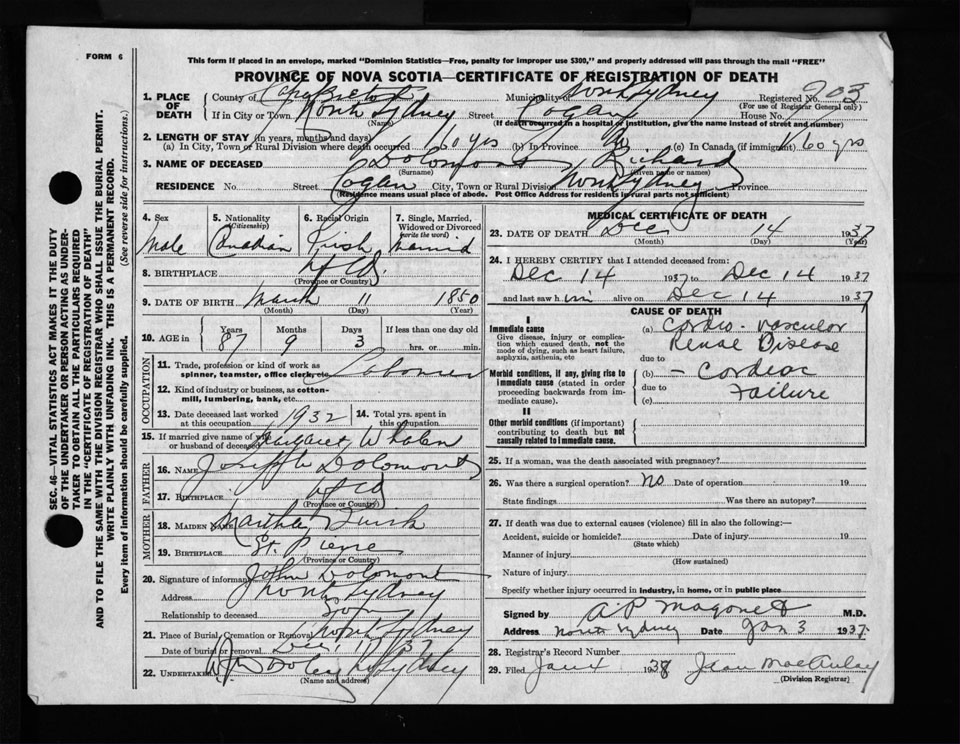 FORM 6
This form if placed in an envelope, marked "Dominion Statistics—Free, penalty for improper use $300," and properly addressed will pass through the mail "FREE"
PROVINCE OF NOVA SCOTIA—CERTIFICATE OF REGISTRATION OF DEATH
SEC. 46—VITAL STATISTICS ACT MAKES IT THE DUTY
OF THE UNDERTAKER OR PERSON ACTING AS UNDER-
TAKER TO OBTAIN ALL THE PARTICULARS REQUIRED
IN THE "CERTIFICATE OF REGISTRATION OF DEATH"
AND TO FILE THE SAME WITH THE DIVISION REGISTRAR WHO SHALL ISSUE THE BURIAL PERMIT.
WRITE PLAINLY WITH UNFADING INK. THIS IS A PERMANENT RECORD.
Every item of information should be carefully supplied. (See reverse side for instructions.)
1. PLACE OF DEATH
County of Cape Breton Municipality of North Sydney Registered No. 903
(For use of Registrar General only)
If in City or Town North Sydney Street Cogan House No.
(Name) (If death occurred in a hospital or institution, give the name instead of street and number)
2. LENGTH OF STAY (in years, months and days)
(a) In City, Town or Rural Division where death occurred 60 yrs (b) In Province (c) In Canada (if immigrant) 60 yrs
3. NAME OF DECEASED Dolomont Richard
(Surname) (Given name or names)
RESIDENCE No. Street Cogan City, Town or Rural Division North Sydney Province
(Residence means usual place of abode. Post Office Address for residents in rural parts not sufficient)
4. Sex Male
5. Nationality (Citizenship) Canadian
6. Racial Origin Irish
7. Single, Married, Widowed or Divorced (write the word) Married
8. BIRTHPLACE Nfld.
(Province or Country)
9. DATE OF BIRTH March 11 1850
(Month) (Day) (Year)
10. AGE in Years 87 Months 9 Days 3 If less than one day old hrs. or min.
OCCUPATION
11. Trade, profession or kind of work as spinner, teamster, office clerk, etc. Laborer
12. Kind of industry or business, as cotton-mill, lumbering, bank, etc.
13. Date deceased last worked at this occupation 1932
14. Total yrs. spent in this occupation
15. If married give name of wife or husband of deceased Margaret Whalen
FATHER
16. NAME Joseph Dolomont
17. BIRTHPLACE Nfld
(Province or Country)
MOTHER
18. MAIDEN NAME Martha Quirk
19. BIRTHPLACE St. Pierre
(Province or Country)
20. Signature of informant John Dolomont
Address North Sydney
Relationship to deceased Son
21. Place of Burial, Cremation or Removal North Sydney
Date of burial or removal Dec.
22. UNDERTAKER Dooley N. Sydney
(Name and address)
MEDICAL CERTIFICATE OF DEATH
23. DATE OF DEATH Dec 14 1937
(Month) (Day) (Year)
24. I HEREBY CERTIFY that I attended deceased from:
Dec 14 1937 to Dec 14 1937
and last saw him alive on Dec 14 1937
CAUSE OF DEATH
I
Immediate cause
Give disease, injury or complication which caused death, not the mode of dying, such as heart failure, asphyxia, asthenia, etc
Morbid conditions, if any, giving rise to immediate cause (stated in order proceeding backwards from immediate cause).
II
Other morbid conditions (if important) contributing to death but not causally related to immediate cause.
(a) Cardio-vascular
Renal Disease
due to
(b) - Cardiac
due to Failure
(c)
25. If a woman, was the death associated with pregnancy?
26. Was there a surgical operation? No Date of operation 19
State findings Was there an autopsy?
27. If death was due to external causes (violence) fill in also the following:—
Accident, suicide or homicide? Date of injury 19
(State which)
Manner of injury
(How sustained)
Nature of injury
Specify whether injury occurred in industry, in home, or in public place
Signed by M.D.
Address North Sydney Date Jan 3 1937
28. Registrar's Record Number
29. Filed Jan 4 1938 Jean MacAulay
(Division Registrar)